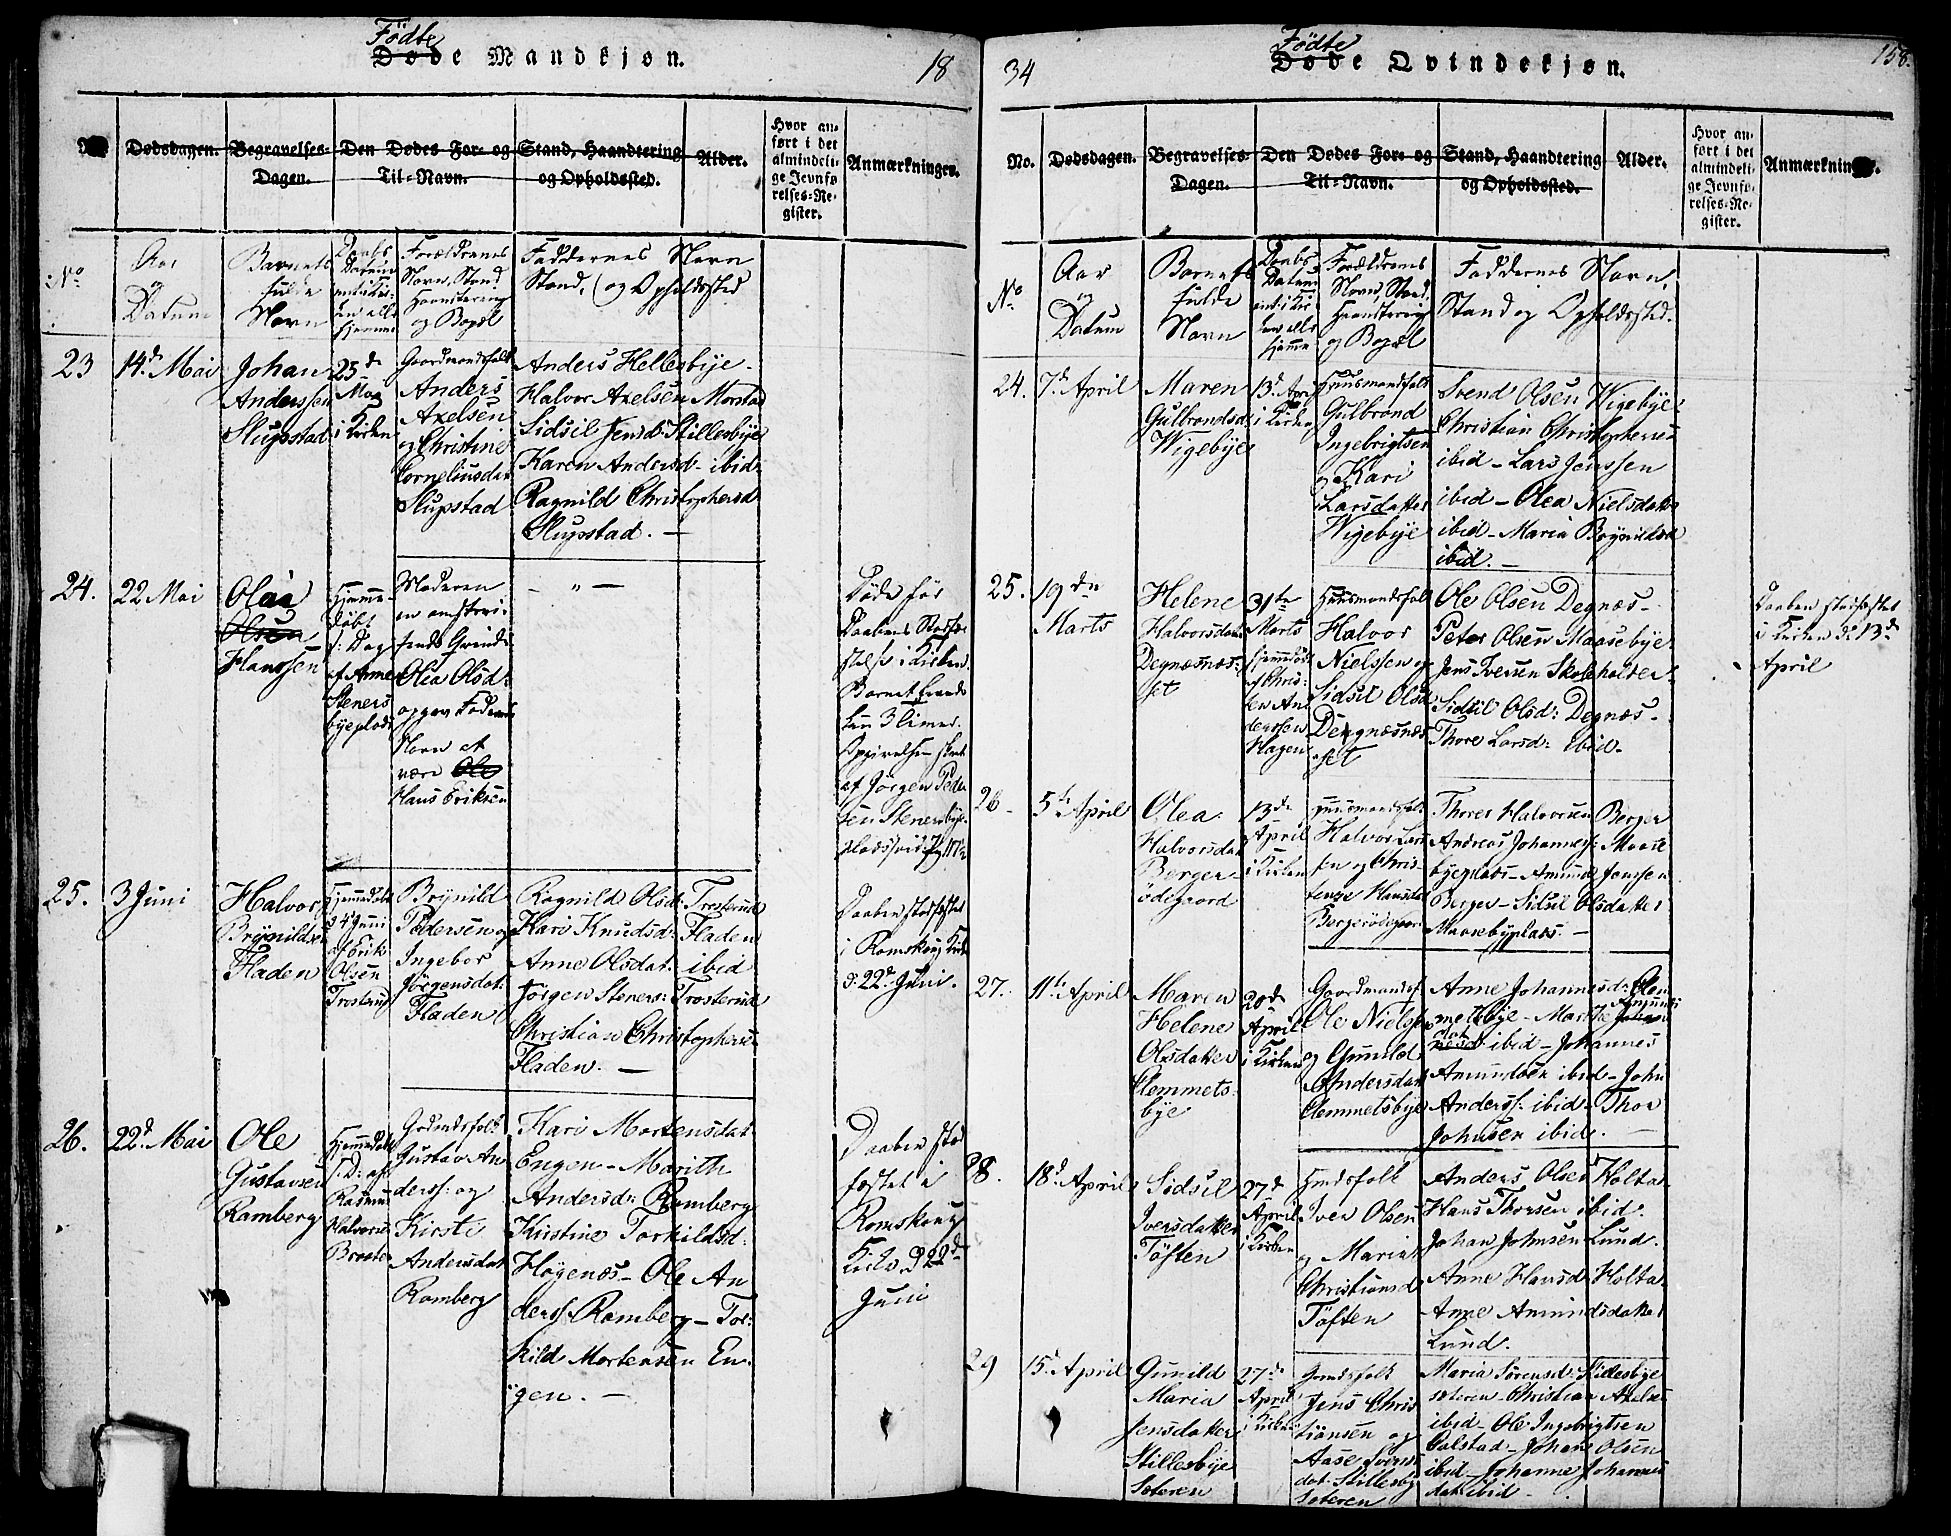 Födte
Døde Mandkjøn.
18
No. Dødsdagen. Begravelses-Dagen. Den Dødes For- og Til-Navn. Stand, Haandtering og Opholdssted. Alder. Hvor anført i det almindelige Jevnførelses-Register. Anmærkninger.
No
Aar
og
Datum
Barnets
fulde
Navn
Daabs
Datum
Forældrenes
Navn, Stand
Haandtering
og Bopæl
Faddernes Navn
Stand, og Opholdssted
23
14d Mai
Johan
Anderssen
Slupstad
25de
Maj
i Kirken
Gaardmandsfolk
Anders
Axelsen
og Christine
Corneliusdat
Slupstad
Anders Hellesbye -
Halvor Axelsen Morstad
Sidsil Jensd: Stillesbye
Karen Andersd - ibid
Ragnild Christophersd
Slupstad. -
24.
22 Mai
Olaa
Olsen
Hanssen
Hjemme-
døbt
s: Dag
af Anne
Steners
byeplads
Moderen
Olia Olsd:
opgav Faderens
Navn at
være Ole
Hans Eriksen
- " -
Døde før
Daabens Stadfæ-
stelse i Kirken.
af Jörgen Peder
sen Stenersbye-
25.
3 Juni
Halvor
Brynildsen
Fladen
Hjemmedøbt
d 4 Juni
af Erik
Olsen
Trosterud
Brynild
Pedersen og
Ingebor
Jörgensdat:
Fladen
Ragnild Olsd: Trosterud
Kari Knudsd: Fladen
Anne Olsdat. ibid
Jørgen Steners: Trosterud
Christian Christophers:
Fladen. -
Daaben stadfæstet
i Romskoug Kirke
d: 22d Juni.
26.
22d Mai
Ole
Gustavsen
Ramberg
Hjemmedøbt
s. D: af
Rasmus
Halvorsen
Braaten
Gustav An
derss: og
Kirsti
Andersdat
Ramberg
Kari Mortensdat
Engen - Marith
Andersd: Ramberg
Kirstine Torkildsd:
Høgenæs - Ole An
derss: Ramberg - Tor-
kild Mortensen En-
gen. -
Daaben stad
fæstet i
Romskoug
Kirke d 22d
Juni
34
Födte
Døde Qvindekjøn.
158.
No. Dødsdagen. Begravelses-Dagen. Den Dødes For- og Til-Navn. Stand, Haandtering og Opholdssted. Alder. Hvor anført i det almindelige Jevnførelses-Register. Anmærkninger.
No
Aar
og
Datum
Barnets
fulde
Navn
Daabs
Datum
Forældrenes
Navn, Stand,
Haandtering
og Bopæl
Faddernes Navn,
Stand og Opholdssted.
24.
7d April
Maren
Gulbrandsd:
Wigebye
13d April
i Kirken
Huusmandsfolk
Gulbrand
Ingebrigtsen
og Kari
Larsdatter
Wigebye
Svend Olsen Wigebye
Christian Christophersen
ibid - Lars Jenssen
ibid - Olea Nielsdatter
ibid - Maria Brynildsd
ibid. -
25.
19den
Marts
Helene
Halvorsdat.
Degnæsnæs:
set
31te
Marts
Hjemmedøbt
af Chris-
ten An
derssen
Hagen
Huusmandsfolk
Halvor
Nielssen og
Sidsil Olsd
Degnæsnæs
set
Ole Olsen Degnæs -
Peter Olsen Maasebye
Jens Iversen Skoleholder -
Sidsil Olsd: Degnæs -
Thore Larsd: ibid -
Daaben stadfæstet
i Kirken d: 13de
April
26
5te April
Olea
Halvorsdat
Berger-
ödegaard
13de
April
i Kirken
Huusmandsfolk
Halvor Lars
sen og Chris-
tense Hansdat
Bergerödegaard
Thorer Halvorsen Berger
Andreas Johannes: Maase
byeplads - Amund Jenssen
Berger - Sidsil Olsdatter
Maasebyplads. -
27.
11te April
Maren
Helene
Olsdatter
Clemmets-
bye
20de
April
i Kirken
Gaardmandsf.
Ole Nielss:
og Gunild
Andersdat
Clemmetsbye
Anne Johannesd: Clem
metsbye - Marthe Amunds
dat ibid - Johannes
Amundsen ibid - John
Anderss: ibid - Thor
Johnsen ibid. -
28.
18d April
Sidsil
Iversdatter
Töften
27d
April
i Kirken
Hmdsfolk
Iver Olsen
og Maria
Christiansd
Töften
Anders Olsen Holta -
Hans Thorsen ibid.
Johan Johnsen Lund.
Anne Hansd Holta -
Anne Amundsdatter
Lund.
29
15d April
Gunild
Maria
Jensdatter
Stillesbye
Sæteren
27de
April
i Kirken
Grmdsfolk
Jens Chris
tiansen og
Aase Svends
dat. Stillesby
Sæteren
Maria Sörensd: Stillesbye
sæteren - Christian Axelsen
ibid - Ole Ingebrigtsen
Galstad - Johan Olsen
ibid - Johanne Johannes
dat ibid -